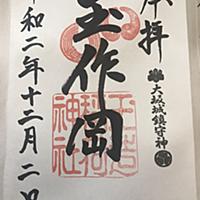 奉拝
大坂城鎮守神
玉作岡
玉造
稲荷
神社
和二年十二月二日